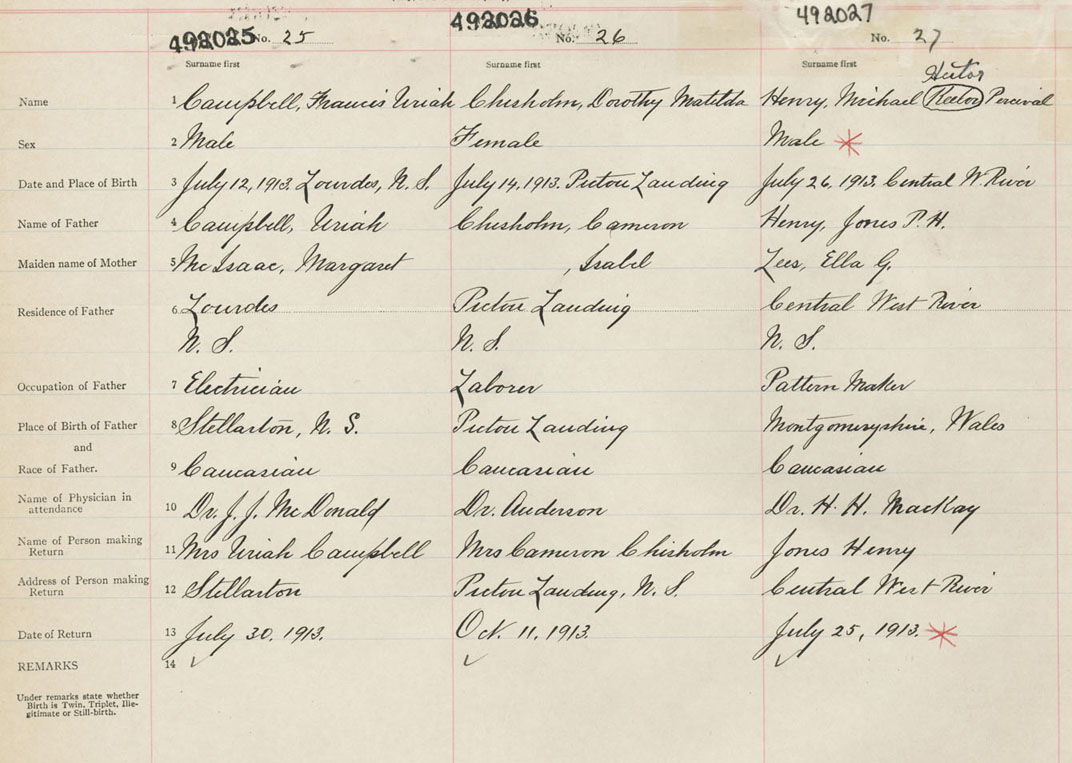 492025 No. 25 492026 No. 26 492027 No. 27
Surname first Surname first Surname first
Hector
Name 1 Campbell, Francis Uriah Chisholm, Dorothy Matilda Henry, Michael Rector Percival
Sex 2 Male Female Male *
Date and Place of Birth 3 July 12, 1913. Lourdes, N. S. July 14, 1913. Pictou Landing July 26, 1913. Central W. River
Name of Father 4 Campbell, Uriah Chisholm, Cameron Henry, Jones P. H.
Maiden name of Mother 5 McIsaac, Margaret , Isabel Lees, Ella G.
Residence of Father 6 Lourdes Pictou Landing Central West River
N. S. N. S. N. S.
Occupation of Father 7 Electrician Laborer Pattern Maker
Place of Birth of Father 8 Stellarton, N. S. Pictou Landing Montgomeryshire, Wales
and
Race of Father. 9 Caucasian Caucasian Caucasian
Name of Physician in
attendance 10 Dr. J. J. McDonald Dr. Anderson Dr. H. H. MacKay
Name of Person making
Return 11 Mrs Uriah Campbell Mrs Cameron Chisholm Jones Henry
Address of Person making
Return 12 Stellarton Pictou Landing, N. S. Central West River
Date of Return 13 July 30, 1913. Oct. 11, 1913. July 25, 1913. *
REMARKS 14 ✓ ✓ ✓
Under remarks state whether
Birth is Twin, Triplet, Ille-
gitimate or Still-birth.